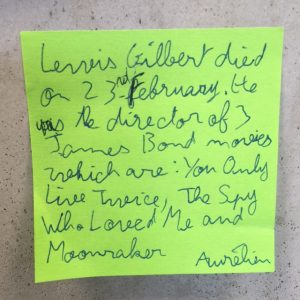 Lewis Gilbert died
on 23rd February. He
was the director of 3
James Bond movies
which are: You Only
Live Twice, The Spy
Who Loved Me and
Moonraker
Aurélien